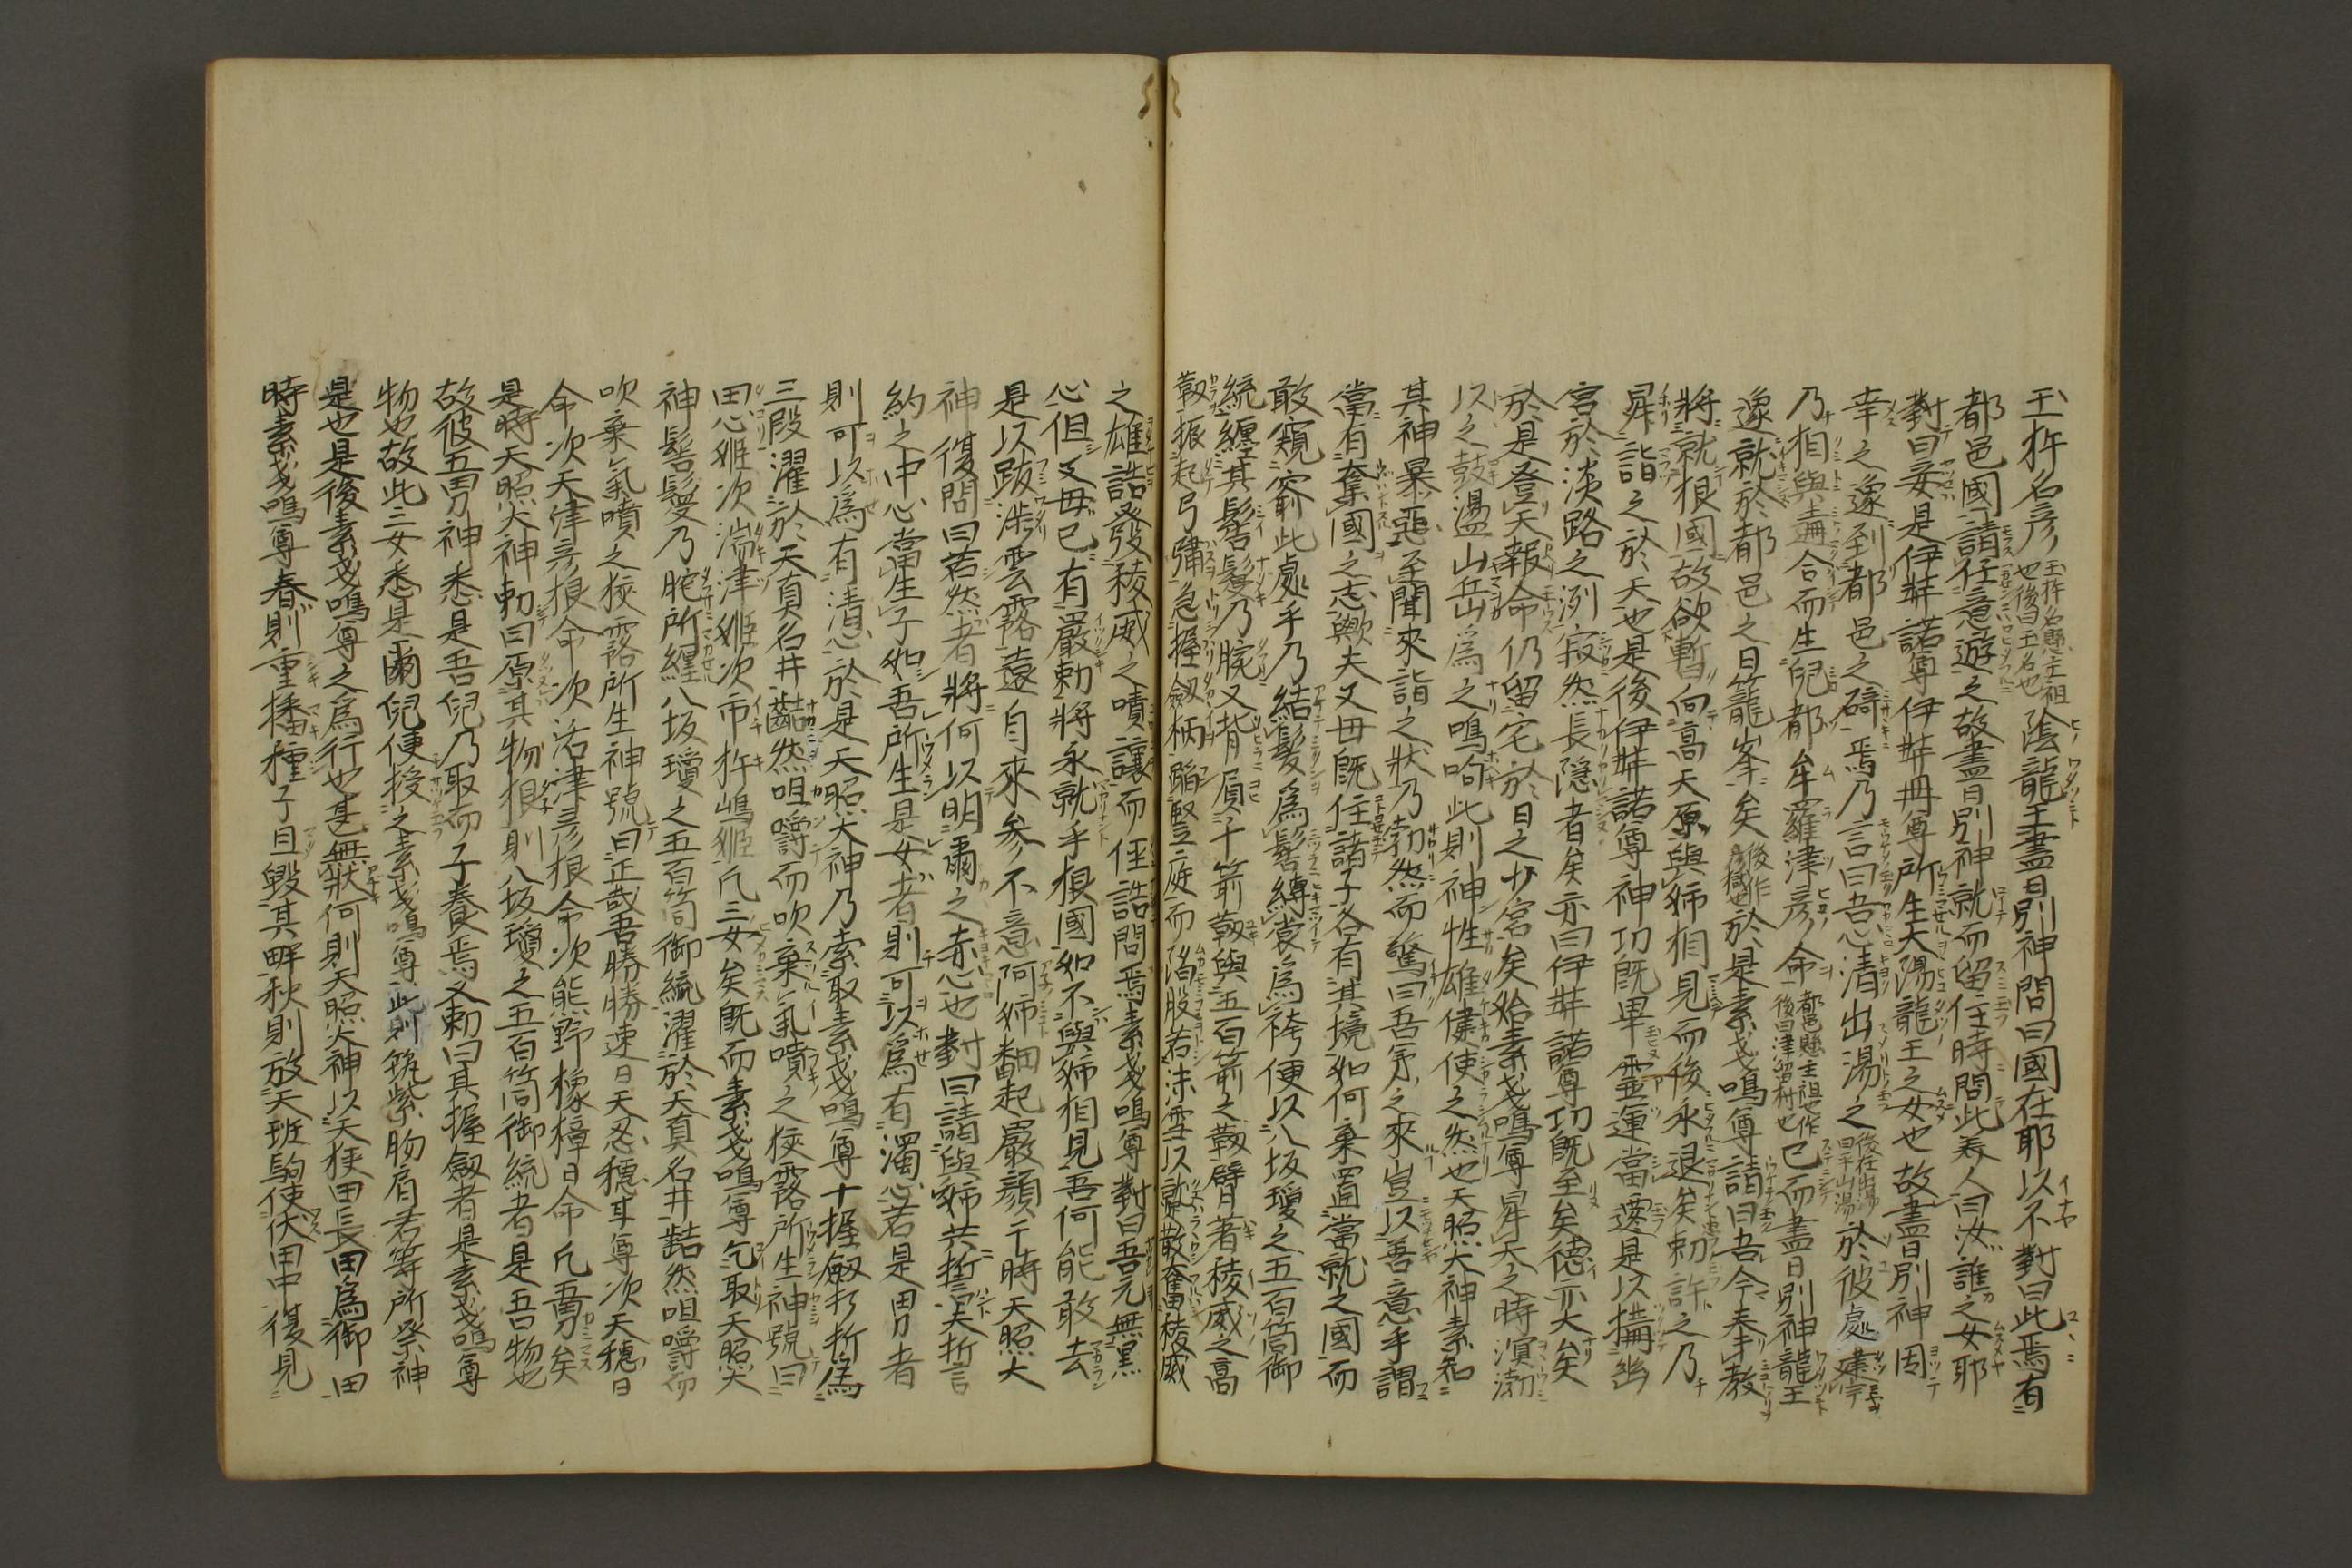 玉杵名彦玉杵名縣主祖也後曰玉名也陰龍王盡日別神問曰國在耶以不對曰此焉有
都邑國請任意遊之故盡日別神就而留住時問此美人曰汝誰之女耶
對曰妾是伊弉諾尊伊弉冊尊所生大陽龍王之女也故盡日別神因
幸之遂到都邑之碕焉乃言曰吾心清出湯之後在出湯曰平山湯於彼處建宇
乃相與遘合而生兒都牟羅津彦命都邑縣主祖也作後曰津留村也已而盡日別神龍王
遂就於都邑之日籠峯矣後作彦嶽也於是素戔嗚尊請曰吾今奉教
將就根國故欲暫向高天原與姉相見而後永退矣勅許之乃
昇詣之於天也是後伊弉諾尊神功既畢靈運當遷是以搆幽
宮於淡路之洌寂然長隱者矣亦曰伊弉諾尊功既至矣德亦大矣
於是登天報命仍留宅於日之少宮矣始素戔嗚尊昇天之時溟渤
以之鼓盪山岳爲之鳴呴此則神性雄健使之然也天照大神素知
其神暴惡至聞來詣之狀乃勃然而驚曰吾弟之來豈以善意乎謂
當有奪國之志歟夫父母既任諸子各有其境如何棄置當就之國而
敢窺窬此處乎乃結髮爲髻縛裳爲袴便以八坂瓊之五百箇御
統纏其髻鬘乃腕又背負千箭靫與五百箭之靫臂著稜威之高
鞆振起弓彇急握劔柄蹈堅庭而陷股若沫雪以蹴散奮稜威
之雄誥發稜威之嘖讓而徑詰問焉素戔嗚尊對曰吾元無黑
心但父母已有嚴勅將永就乎根國如不與姉相見吾何能敢去
是以跋渉雲霧遠自來参不意阿姉翻起嚴顏于時天照大
神復問曰若然者將何以明爾之赤心也對曰請與姉共誓夫誓
約之中心當生子如吾所生是女者則可以爲有濁心若是男者
則可以爲有清心於是天照大神乃索取素戔嗚尊十握劔打折爲
三段濯於天真名井齰然咀嚼而吹棄氣噴之狹霧所生神號曰
田心姫次湍津姫次市杵嶋姫凡三女矣既而素戔嗚尊乞取天照大
神髻鬘乃腕所纏八坂瓊之五百箇御統濯於天真名井齰然咀嚼而
吹棄氣噴之狹霧所生神號曰正哉吾勝勝速日天忍穗耳尊次天穗日
命次天津彦根命次活津彦根命次熊野櫲樟日命凡五男矣
是時天照大神勅曰原其物根則八坂瓊之五百箇御統者是吾物也
故彼五男神悉是吾兒乃取而子養焉又勅曰其握劔者是素戔嗚尊
物也故此三女悉是爾兒便授之素戔嗚尊此則筑紫胸肩君等所祭神
是也是後素戔嗚尊之爲行也甚無狀何則天照大神以天狹田長田爲御田
時素戔嗚尊春則重播種子且毀其畔秋則放天斑駒使伏田中復見